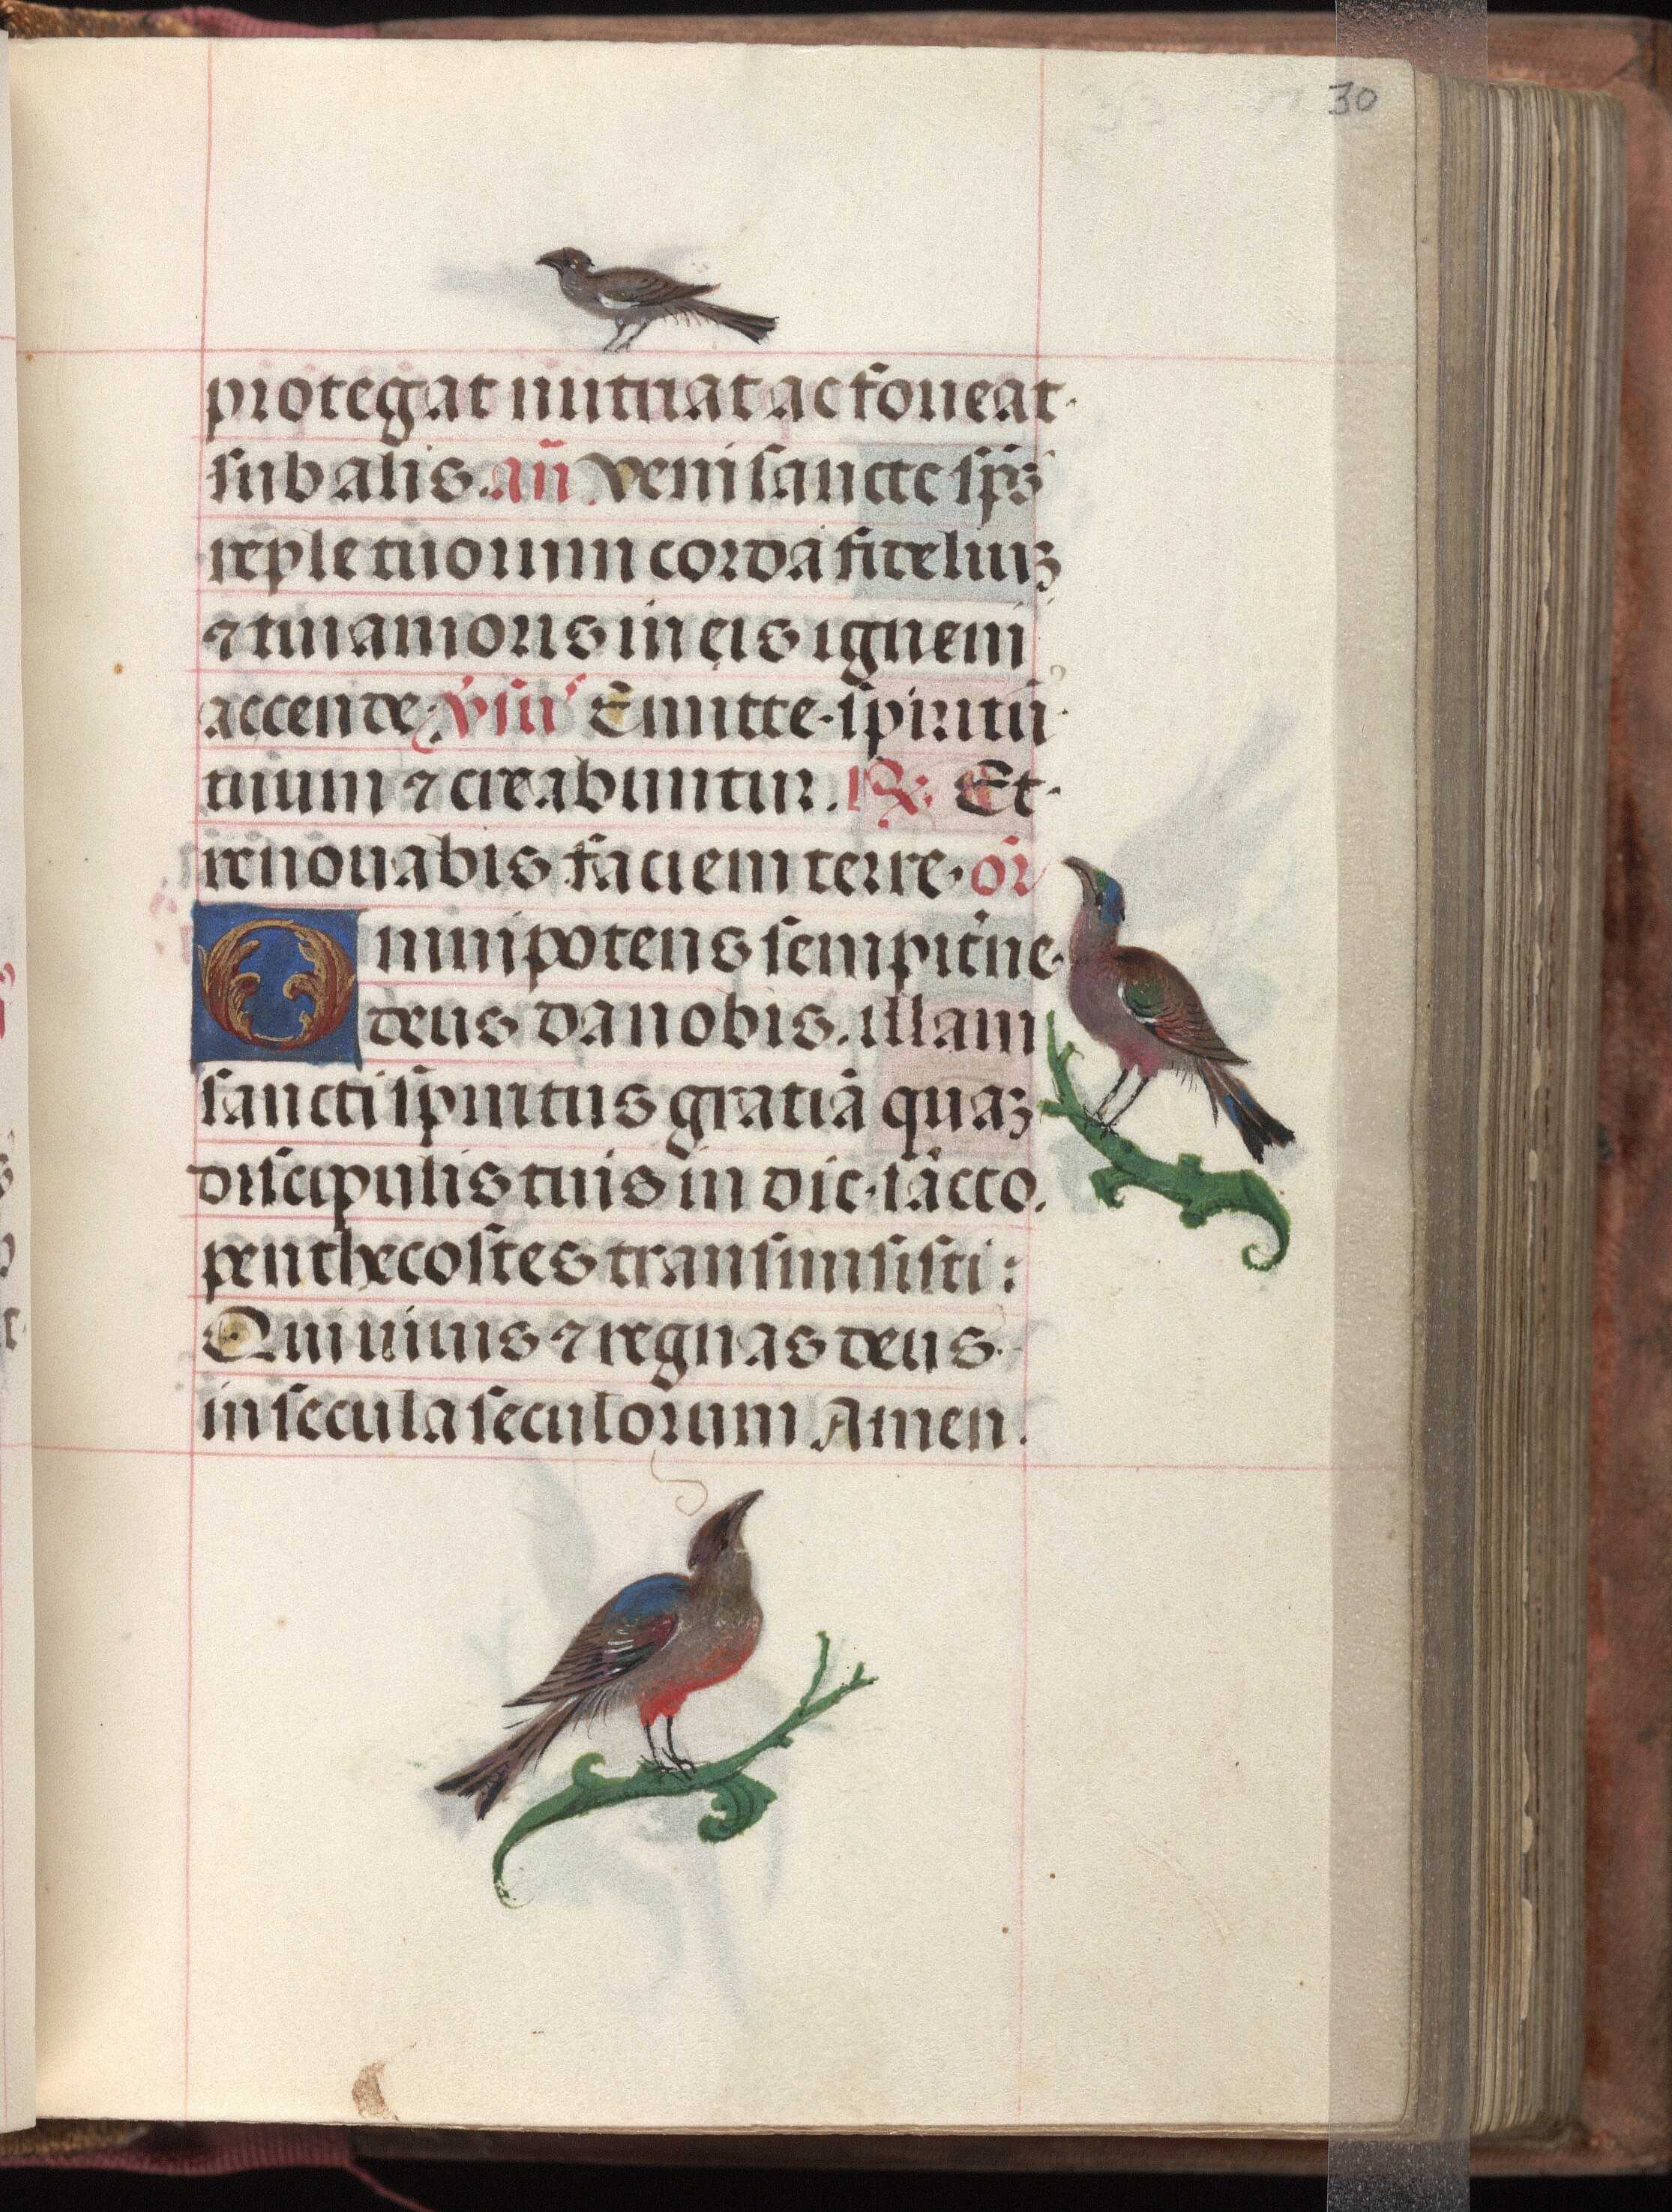 30
protegat nutriat ac foueat
sub alis. an̄ Veni sancte sp̄s
reple tuorum corda fideliuꝫ
⁊ tui amoris in eis ignem
accende. v̄sus Emitte spiritū
tuum ⁊ creabuntur. ℟. Et
renouabis faciem terre. or̄
Omnipotens sempit̄ne
deus da nobis. illam
sancti spiritus gratiā quaꝫ
discipulis tuis in die. sācto.
penthecostes transmisisti:
Qui uiuis ⁊ regnas deus.
in secula seculorum Amen.